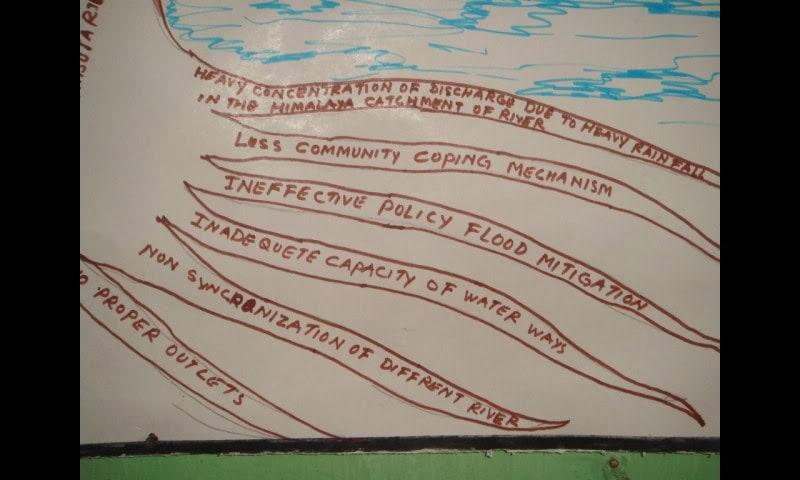 HEAVY CONCENTRATION OF DISCHARGE DUE TO HEAVY RAINFALL
IN THE HIMALAYA CATCHMENT OF RIVER
LOSS COMMUNITY COPING MECHANISM
INEFFECTIVE POLICY FLOOD MITIGATION
INADEQUETE CAPACITY OF WATER WAYS
NON SYNCRONIZATION OF DIFFRENT RIVER
PROPER OUTLETS